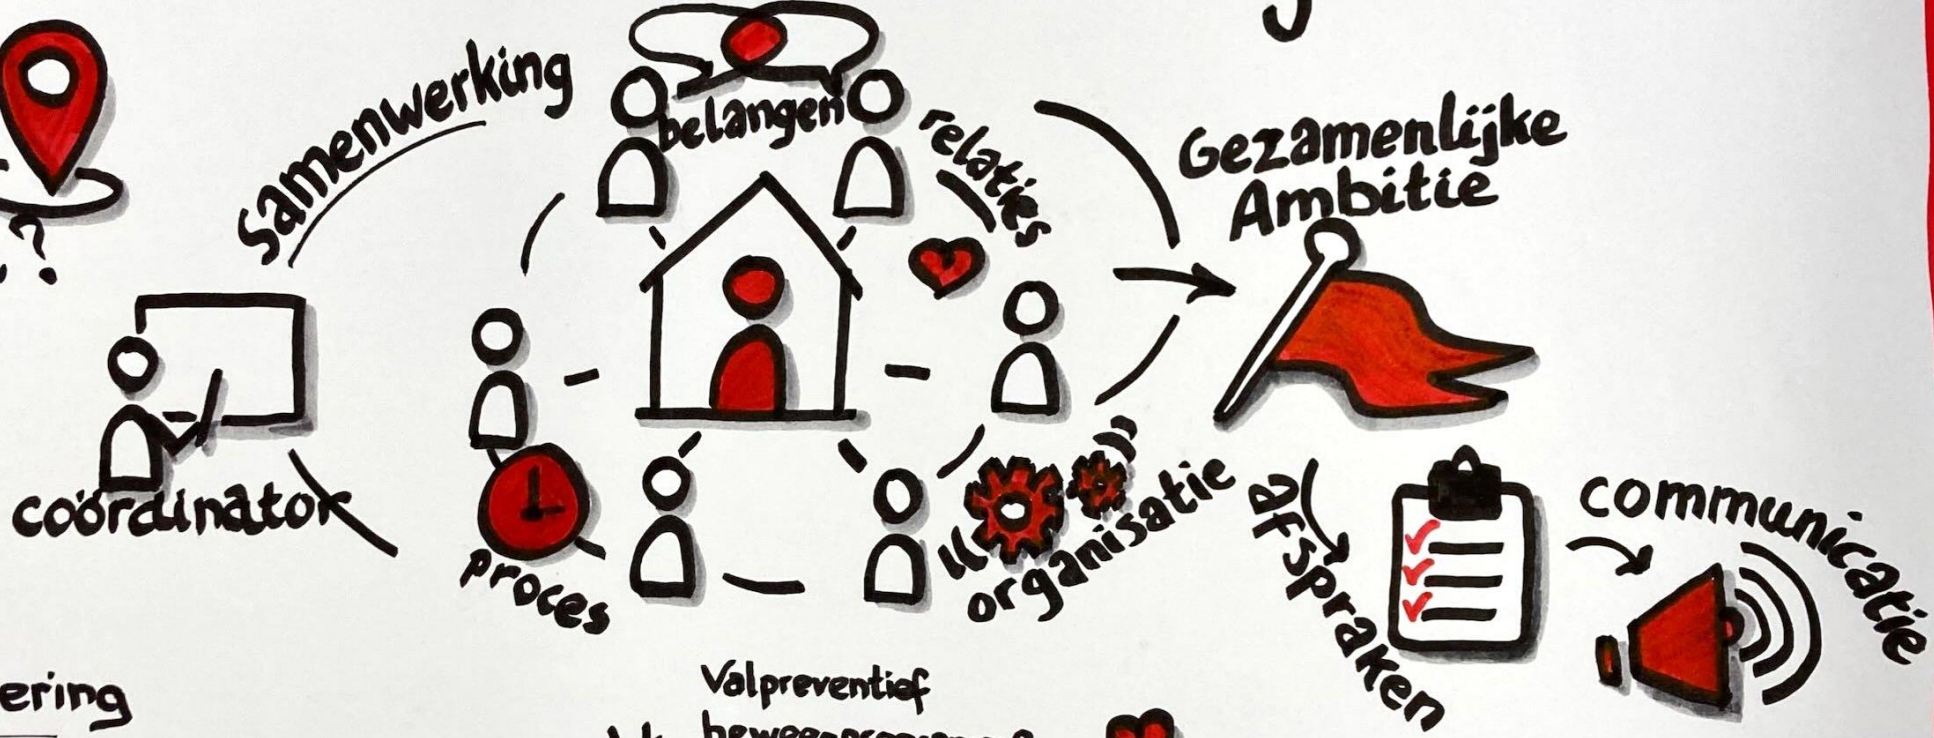 Samenwerking
belangen
relaties
Gezamenlijke
Ambitie
?
coördinator
proces
organisatie
afspraken
communicatie
ering
Valpreventief